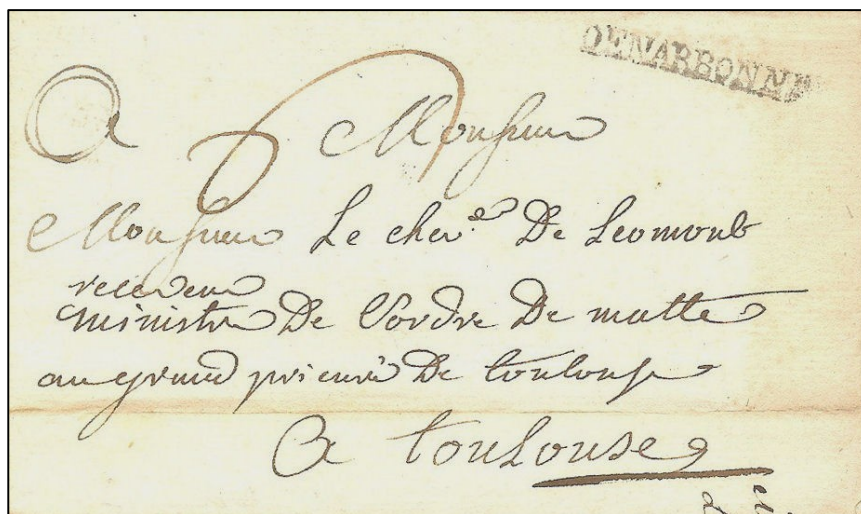 DENARBONNE
A Monsieur
Monsieur Le cher. De Leomont
receveur
ministre De L'ordre De malte
au grand prieuré De toulouse
A toulouse